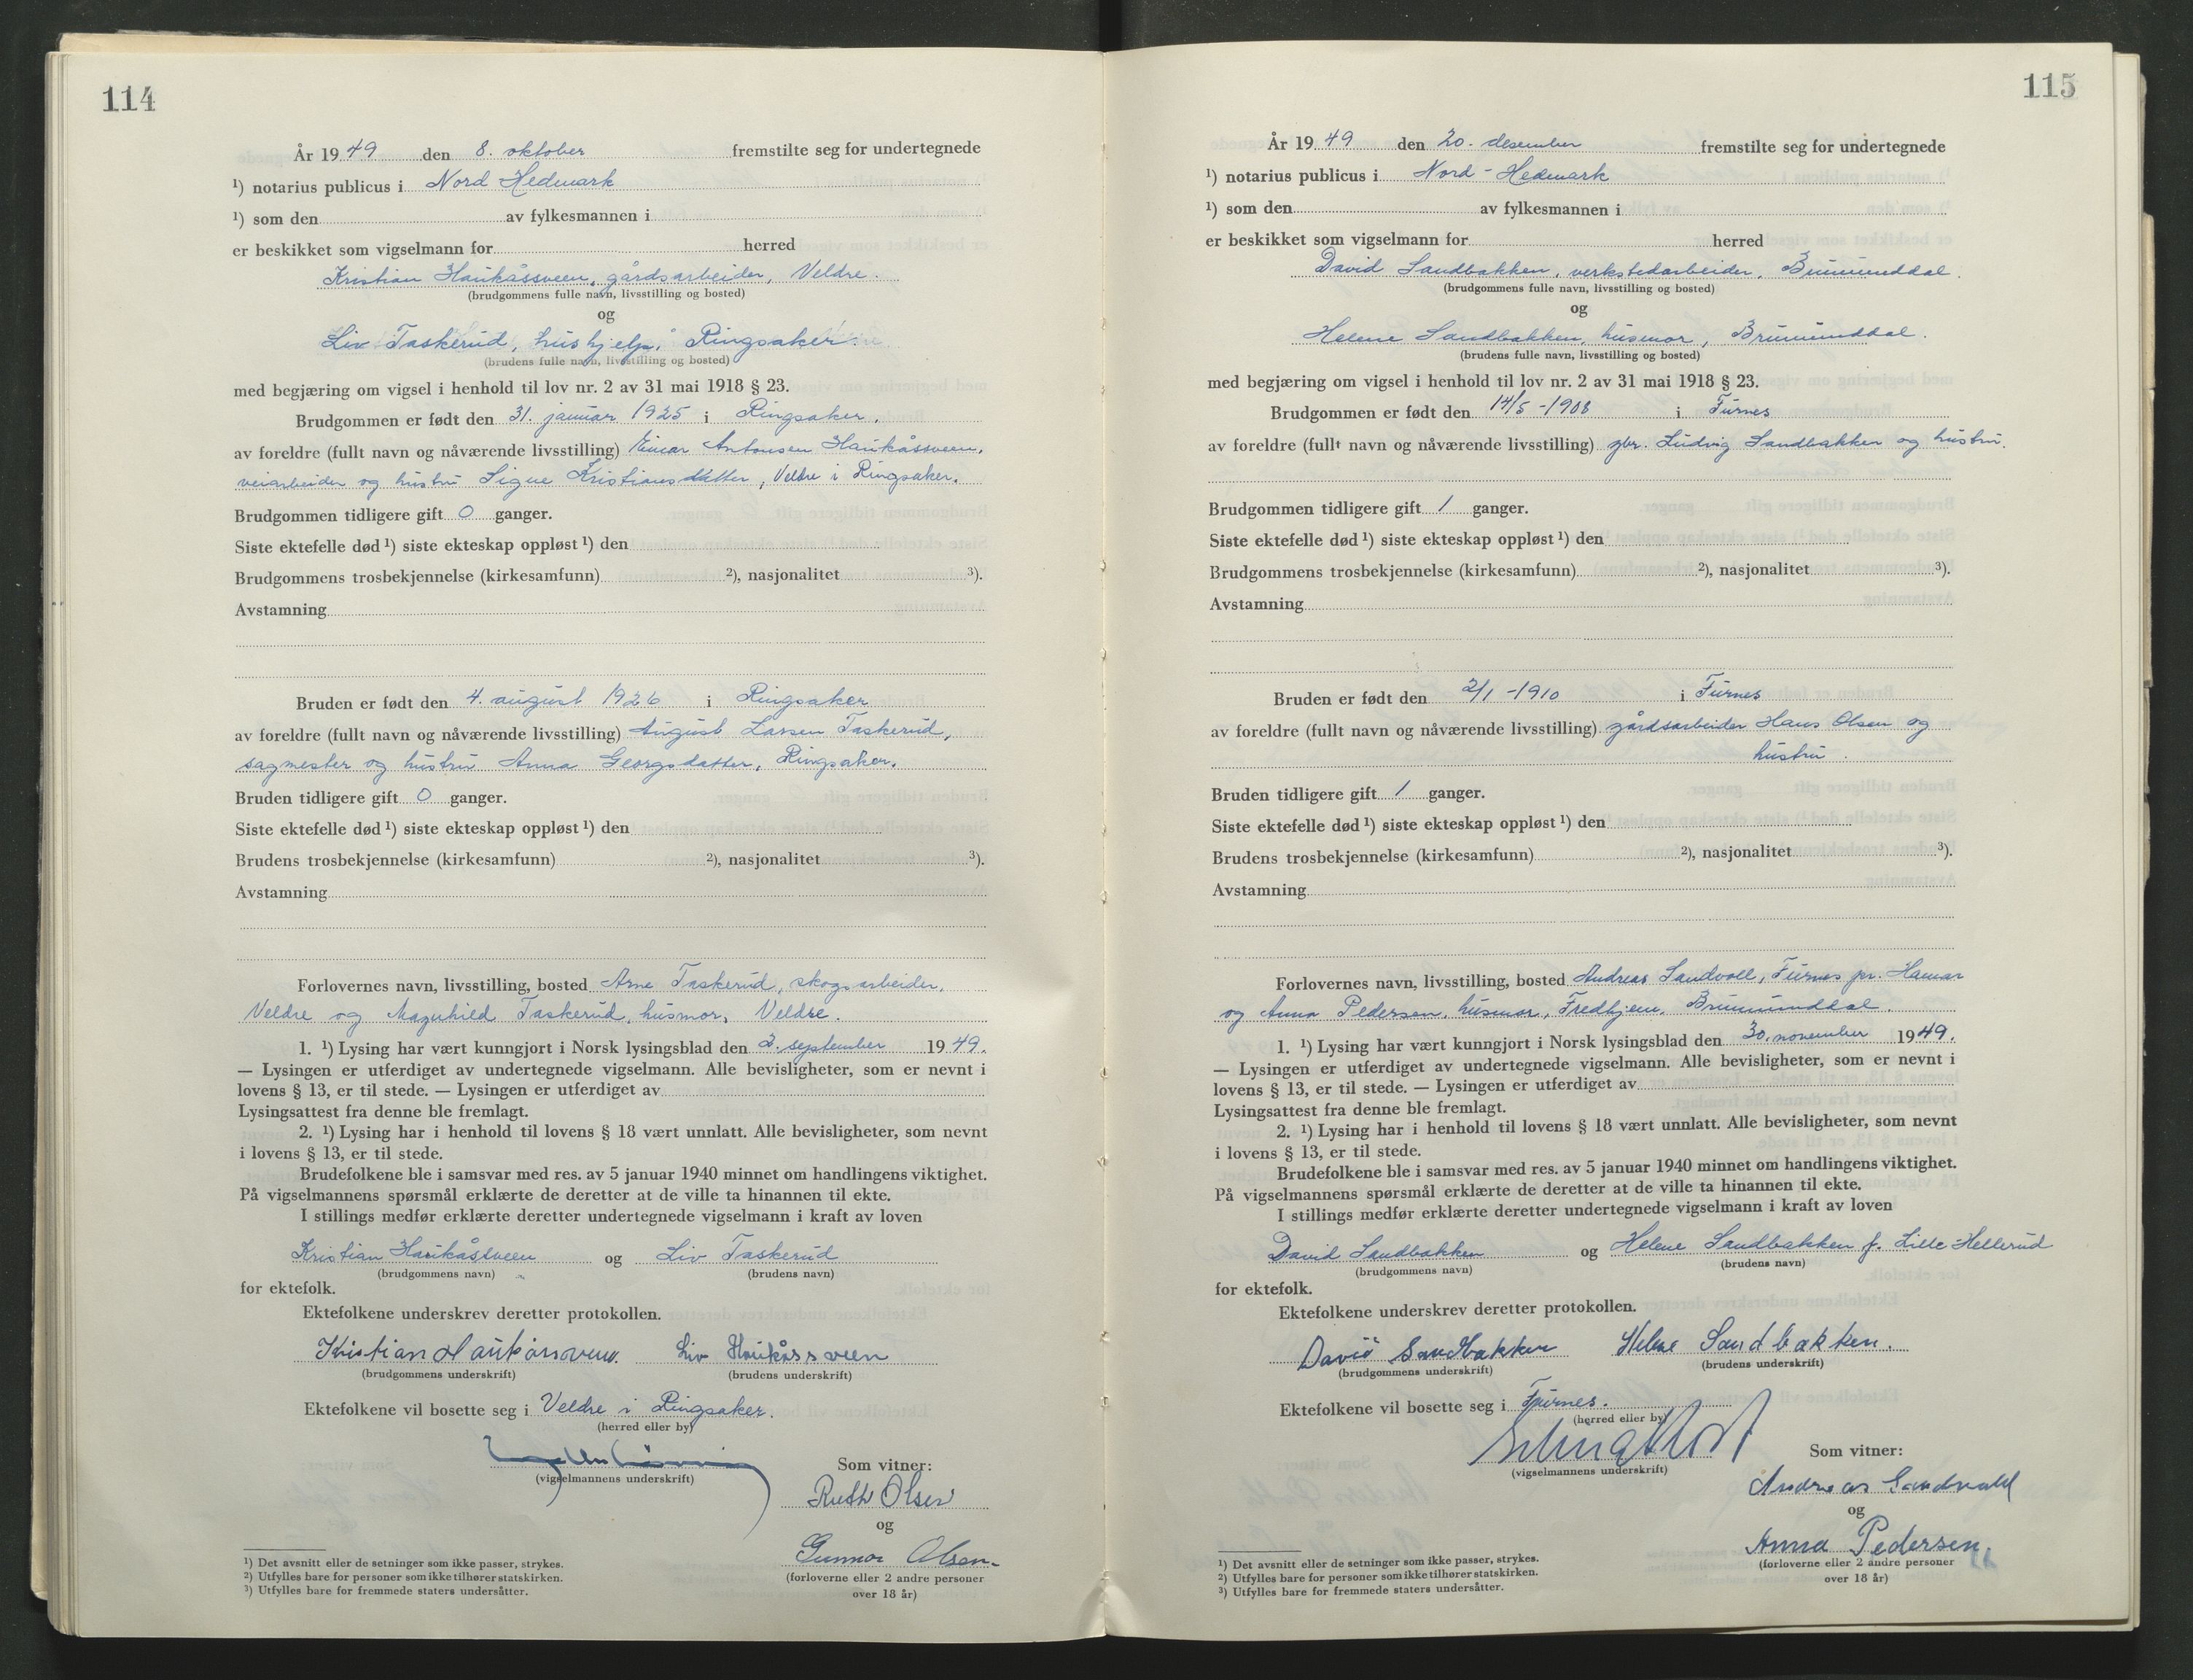 114
År 1949 den 8. oktober fremstilte seg for undertegnede
¹) notarius publicus i Nord Hedmark
¹) som den av fylkesmannen i
er beskikket som vigselmann for herred
Kristian Haukåssveen, gårdsarbeider, Veldre.
(brudgommens fulle navn, livsstilling og bosted)
og
Liv Taskerud, hushjelp, Ringsaker.
(brudens fulle navn, livsstilling og bosted)
med begjæring om vigsel i henhold til lov nr. 2 av 31 mai 1918 § 23.
Brudgommen er født den 31. januar 1925 i Ringsaker.
av foreldre (fullt navn og nåværende livsstilling) Einar Antonsen Haukåssveen,
veiarbeider og hustru Signe Kristiansdatter, Veldre i Ringsaker.
Brudgommen tidligere gift 0 ganger.
Siste ektefelle død ¹) siste ekteskap oppløst ¹) den
Brudgommens trosbekjennelse (kirkesamfunn) ²), nasjonalitet ³).
Avstamning
Bruden er født den 4. august 1926 i Ringsaker
av foreldre (fullt navn og nåværende livsstilling) August Larsen Taskerud,
sagmester og hustru Anna Georgsdatter, Ringsaker.
Bruden tidligere gift 0 ganger.
Siste ektefelle død ¹) siste ekteskap oppløst ¹) den
Brudens trosbekjennelse (kirkesamfunn) ²), nasjonalitet ³).
Avstamning
Forlovernes navn, livsstilling, bosted Arne Taskerud, skogsarbeider,
Veldre og Magnhild Taskerud, husmor, Veldre.
1. ¹) Lysing har vært kunngjort i Norsk lysingsblad den 2. september 1949.
— Lysingen er utferdiget av undertegnede vigselmann. Alle bevisligheter, som er nevnt i
lovens § 13, er til stede. — Lysingen er utferdiget av
Lysingsattest fra denne ble fremlagt.
2. ¹) Lysing har i henhold til lovens § 18 vært unnlatt. Alle bevisligheter, som nevnt
i lovens § 13, er til stede.
Brudefolkene ble i samsvar med res. av 5 januar 1940 minnet om handlingens viktighet.
På vigselmannens spørsmål erklærte de deretter at de ville ta hinannen til ekte.
I stillings medfør erklærte deretter undertegnede vigselmann i kraft av loven
Kristian Haukåssveen og Liv Taskerud
(brudgommens navn) (brudens navn)
for ektefolk.
Ektefolkene underskrev deretter protokollen.
Kristian Haukåssveen. Liv Haukåssveen
(brudgommens underskrift) (brudens underskrift)
Ektefolkene vil bosette seg i Veldre i Ringsaker.
(herred eller by)
(vigselmannens underskrift)
Som vitner:
Ruth Olsen
og
Gunnar Olsen
(forloverne eller 2 andre personer
over 18 år)
¹) Det avsnitt eller de setninger som ikke passer, strykes.
²) Utfylles bare for personer som ikke tilhører statskirken.
³) Utfylles bare for fremmede staters undersåtter.
115
År 1949 den 20. desember fremstilte seg for undertegnede
¹) notarius publicus i Nord-Hedmark
¹) som den av fylkesmannen i
er beskikket som vigselmann for herred
David Sandbakken, verkstedarbeider, Brumunddal.
(brudgommens fulle navn, livsstilling og bosted)
og
Helene Sandbakken, husmor, Brumunddal.
(brudens fulle navn, livsstilling og bosted)
med begjæring om vigsel i henhold til lov nr. 2 av 31 mai 1918 § 23.
Brudgommen er født den 14/5-1908 i Furnes
av foreldre (fullt navn og nåværende livsstilling) gbr. Ludvig Sandbakken og hustru.
Brudgommen tidligere gift 1 ganger.
Siste ektefelle død ¹) siste ekteskap oppløst ¹) den
Brudgommens trosbekjennelse (kirkesamfunn) ²), nasjonalitet ³).
Avstamning
Bruden er født den 2/1-1910 i Furnes
av foreldre (fullt navn og nåværende livsstilling) gårdsarbeider Hans Olsen og
hustru.
Bruden tidligere gift 1 ganger.
Siste ektefelle død ¹) siste ekteskap oppløst ¹) den
Brudens trosbekjennelse (kirkesamfunn) ²), nasjonalitet ³).
Avstamning
Forlovernes navn, livsstilling, bosted Andreas Sandvoll, Furnes pr. Hamar
og Anna Pedersen, husmor, Fredhjem, Brumunddal.
1. ¹) Lysing har vært kunngjort i Norsk lysingsblad den 30. november 1949.
— Lysingen er utferdiget av undertegnede vigselmann. Alle bevisligheter, som er nevnt i
lovens § 13, er til stede. — Lysingen er utferdiget av
Lysingsattest fra denne ble fremlagt.
2. ¹) Lysing har i henhold til lovens § 18 vært unnlatt. Alle bevisligheter, som nevnt
i lovens § 13, er til stede.
Brudefolkene ble i samsvar med res. av 5 januar 1940 minnet om handlingens viktighet.
På vigselmannens spørsmål erklærte de deretter at de ville ta hinannen til ekte.
I stillings medfør erklærte deretter undertegnede vigselmann i kraft av loven
David Sandbakken og Helene Sandbakken f. Lille-Hellerud
(brudgommens navn) (brudens navn)
for ektefolk.
Ektefolkene underskrev deretter protokollen.
David Sandbakken Helene Sandbakken.
(brudgommens underskrift) (brudens underskrift)
Ektefolkene vil bosette seg i Furnes.
(herred eller by)
(vigselmannens underskrift)
Som vitner:
Andreas Sandvold
og
Anna Pedersen
(forloverne eller 2 andre personer
over 18 år)
¹) Det avsnitt eller de setninger som ikke passer, strykes.
²) Utfylles bare for personer som ikke tilhører statskirken.
³) Utfylles bare for fremmede staters undersåtter.